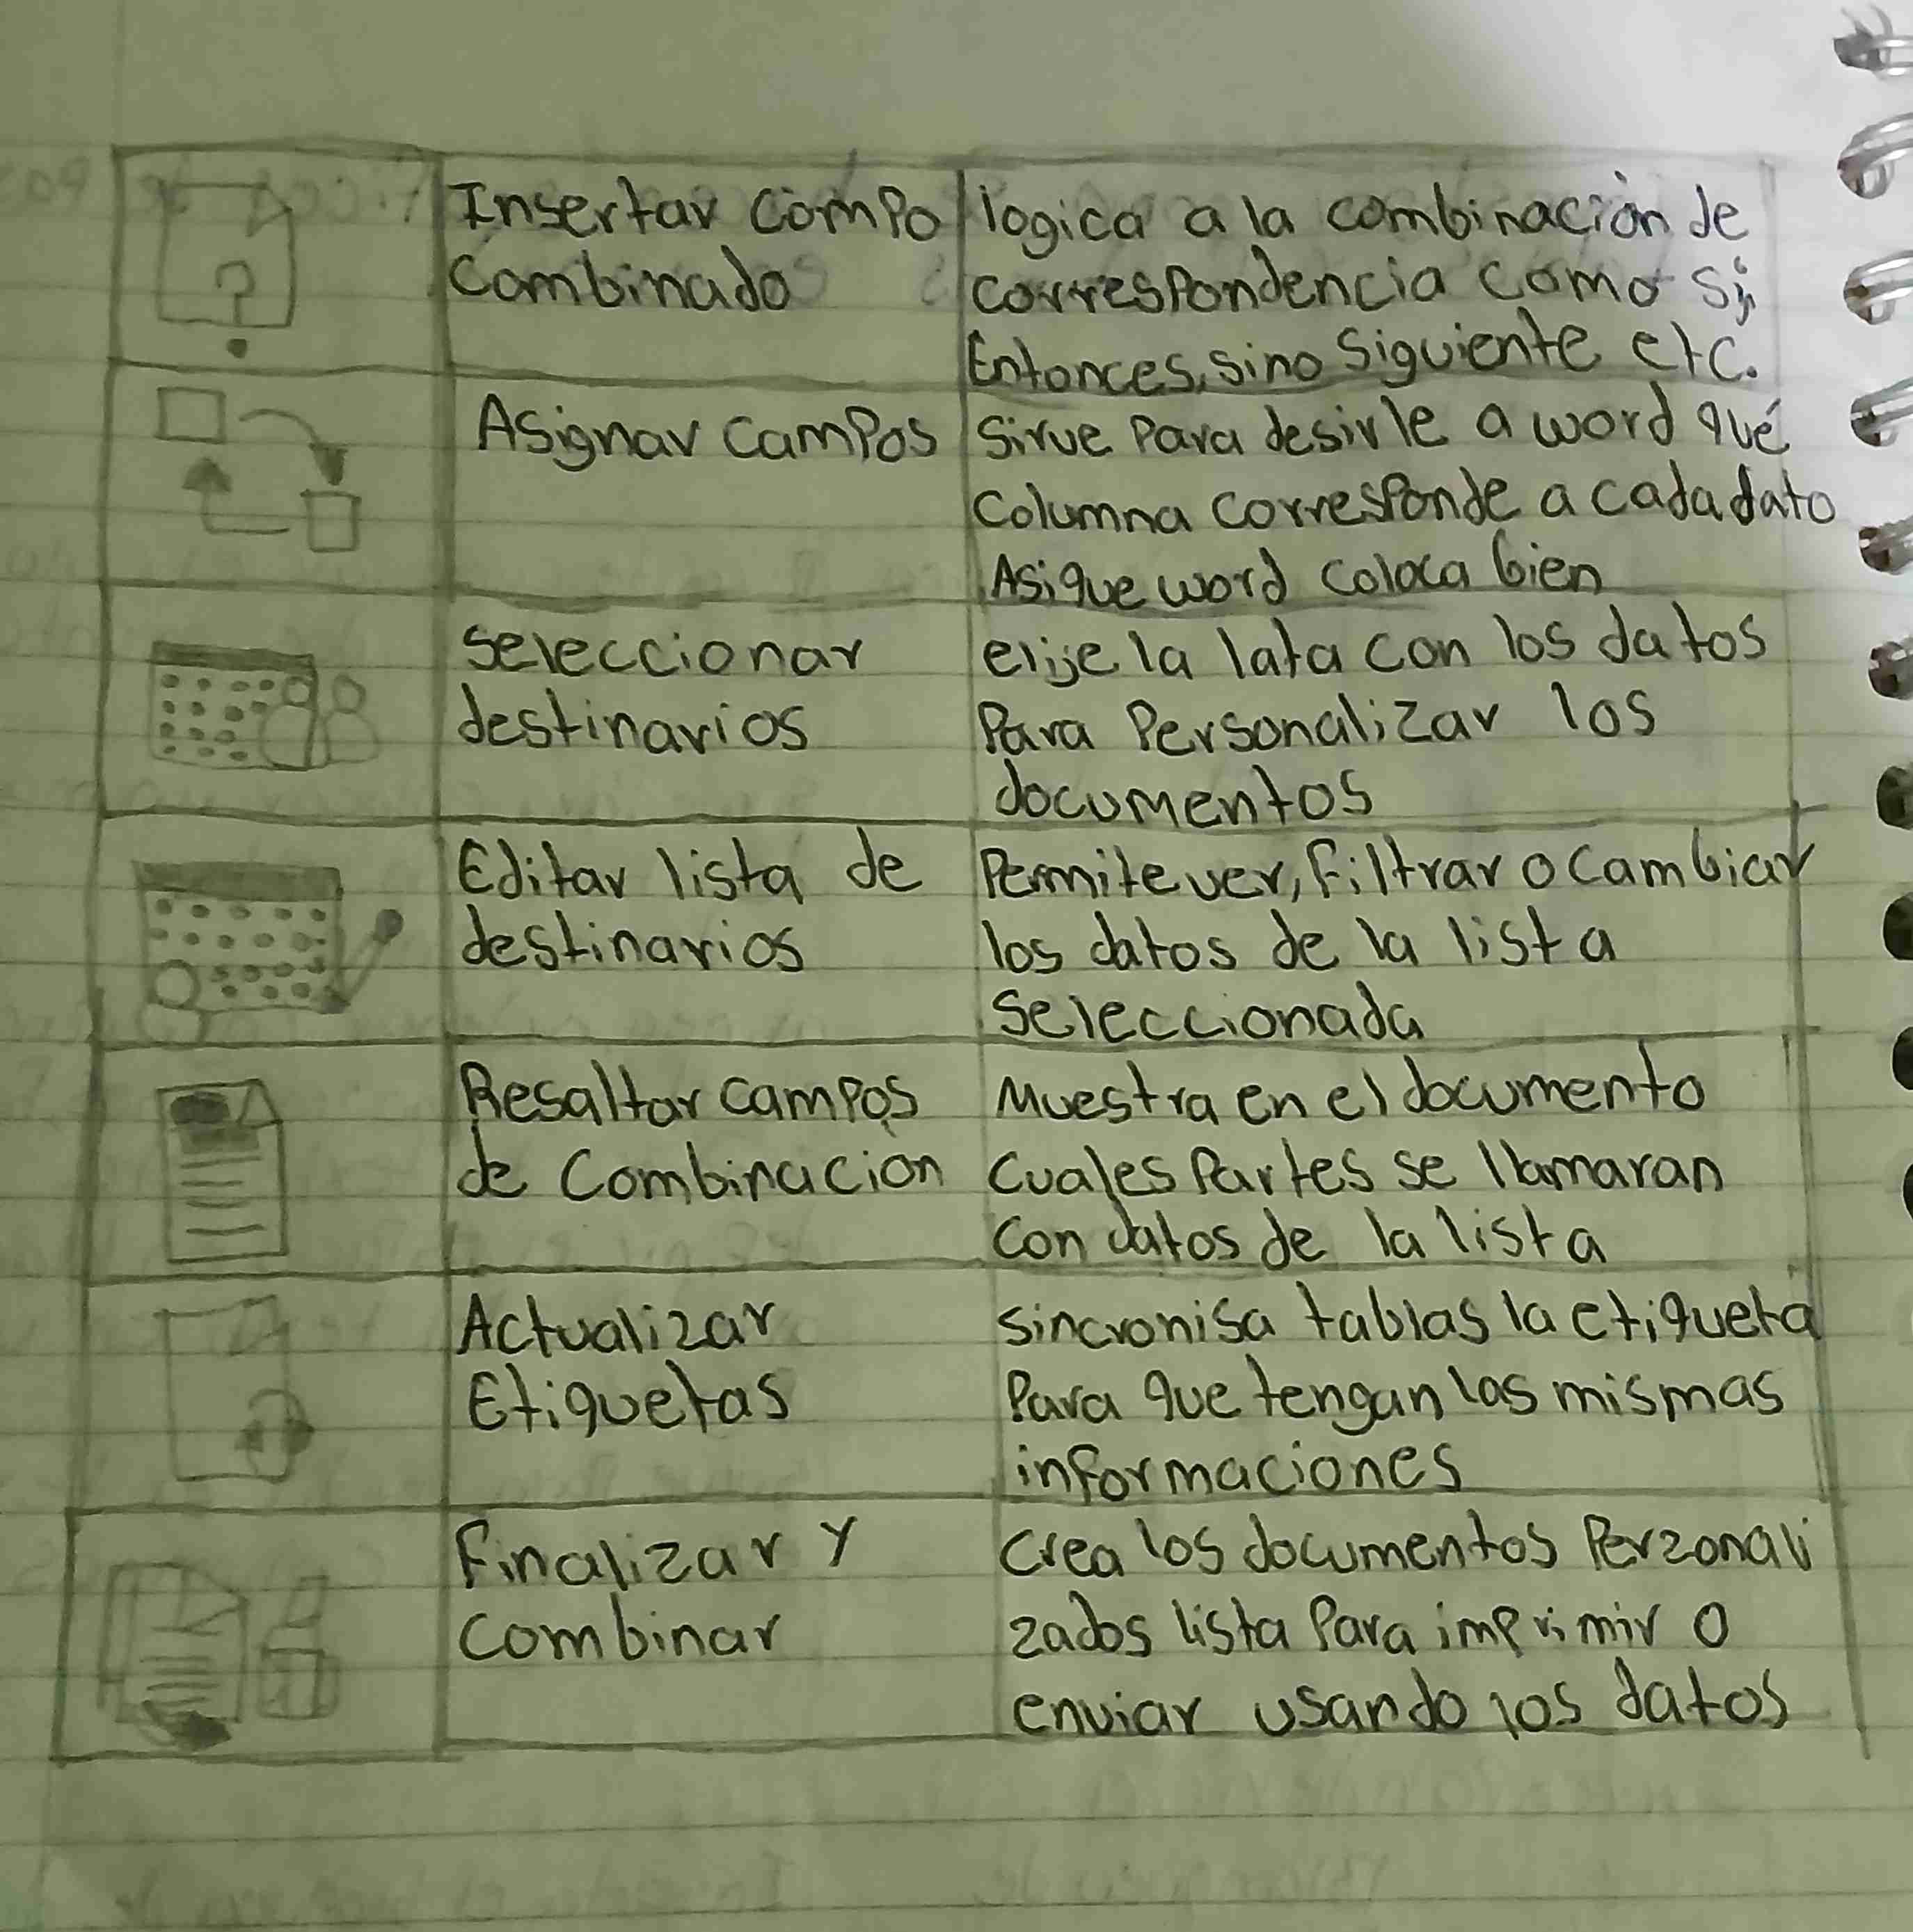 Insertar Compo
Combinado
logica a la combinación de
correspondencia como si,
Entonces, sino siguiente etc.
Asignar Campos
Sirve Para desirle a word qué
Columna corresponde a cada dato
Asique word coloca bien
Seleccionar
destinarios
elije la lata con los datos
Para Personalizar los
documentos
Editar lista de
destinarios
Permite ver, Filtrar o Cambiar
los datos de la lista
Seleccionada
Resaltar campos
de Combinacion
Muestra en el documento
Cuales Partes se llamaran
Con datos de la lista
Actualizar
Etiquetas
sincronisa tablas la etiqueta
Para que tengan las mismas
informaciones
Finalizar y
combinar
Crea los documentos Perzonali
zados lista Para imprimir o
enviar usando los datos